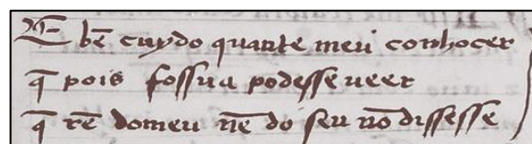 E bẽ cuydo quante meu conhocer
q̄ pois fossua podesse ueer
q̄ rẽ domeu nẽ do seu nõ dissesse